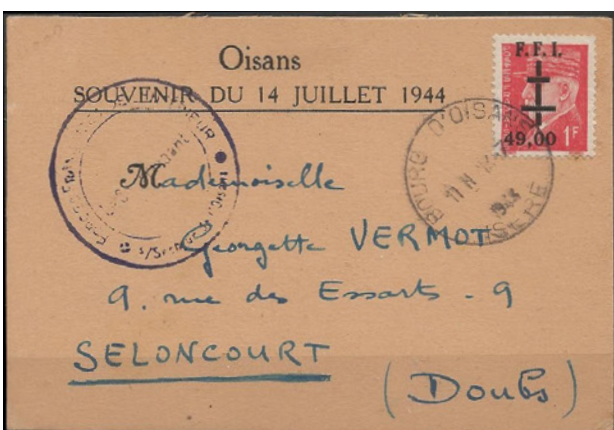 Oisans
SOUVENIR DU 14 JUILLET 1944
F.F.I.
49,00
1F
BOURG D'OISANS
ISERE
Mademoiselle
Georgette VERMOT
9. rue des Essarts - 9
SELONCOURT
(Doubs)